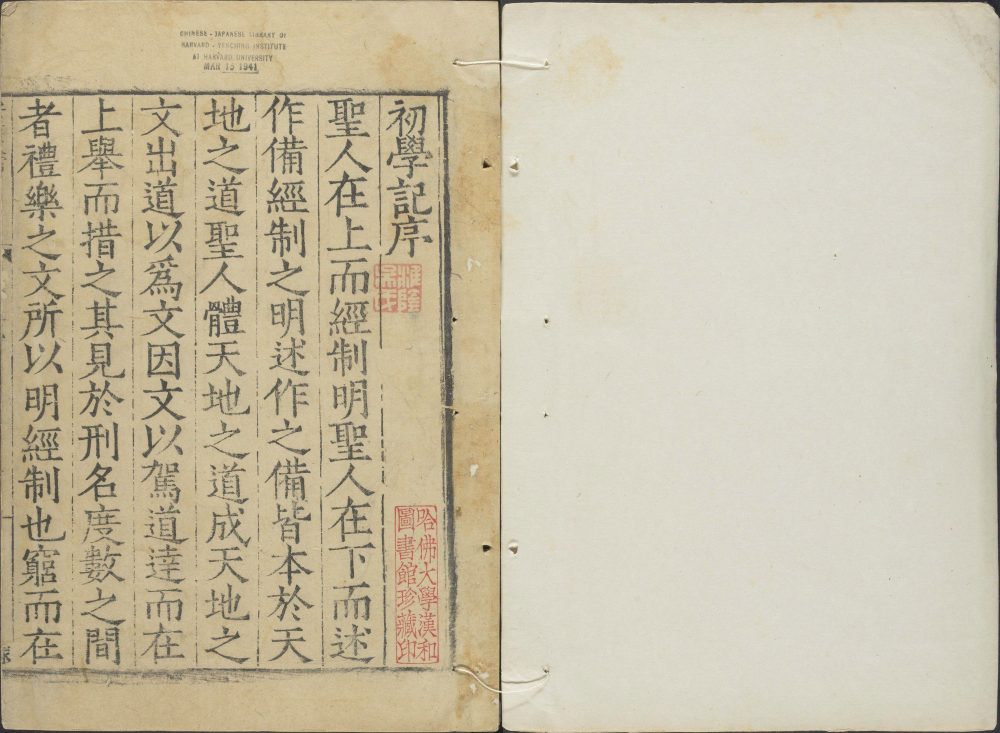 CHINESE - JAPANESE LIBRARY OF
HARVARD - YENCHING INSTITUTE
AT HARVARD UNIVERSITY
MAR 15 1941
初學記序
聖人在上而經制明聖人在下而述
作備經制之明述作之備皆本於天
地之道聖人體天地之道成天地之
文出道以爲文因文以駕道達而在
上舉而措之其見於刑名度數之間
者禮樂之文所以明經制也窮而在
淮陰
吳氏
哈佛大學漢和
圖書館珍藏印